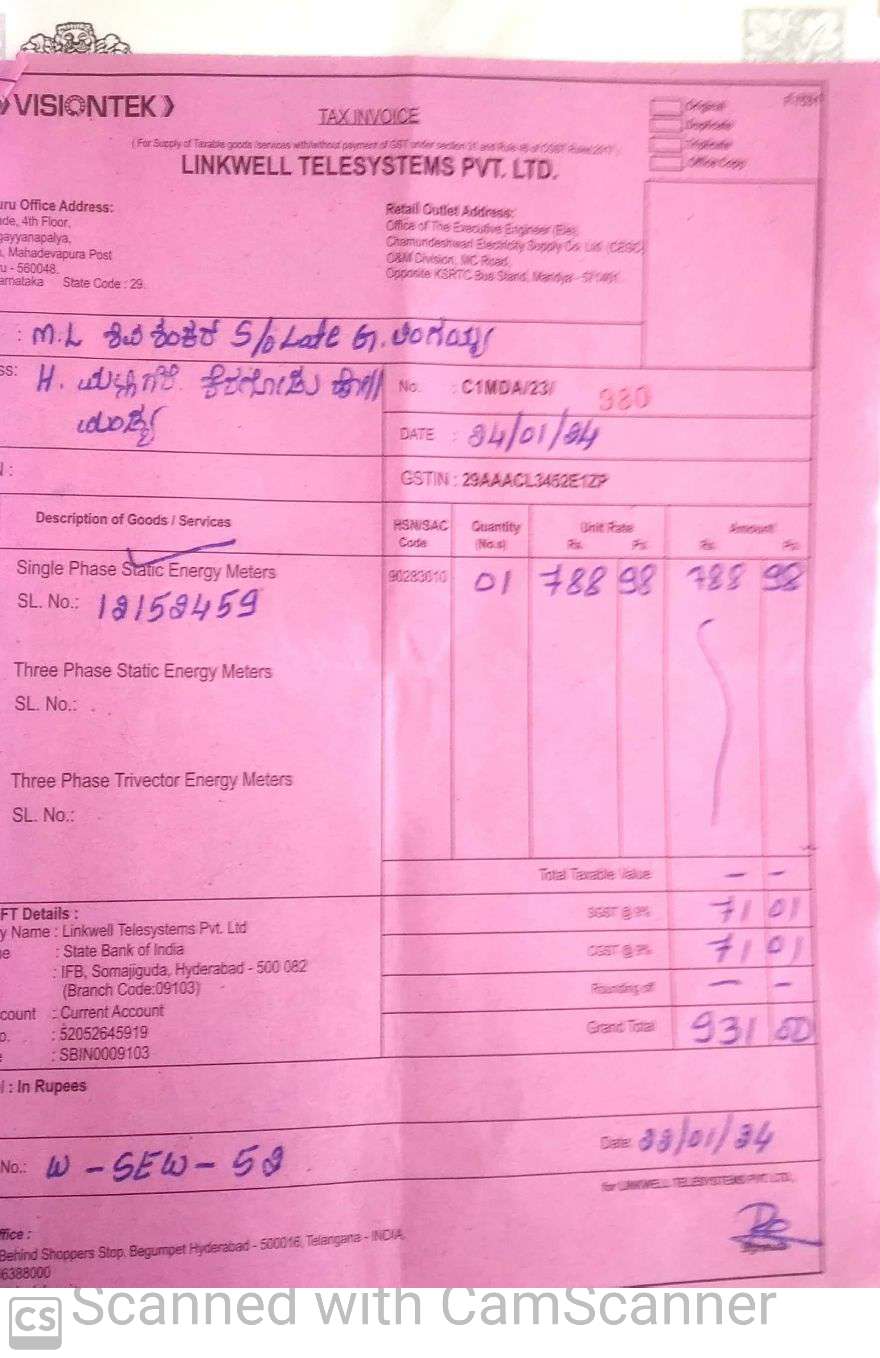 VISIONTEK
TAX INVOICE
Original
Duplicate
Triplicate
Office Copy
(For Supply of Taxable goods /services with/without payment of GST under section 31 and Rule 46 of CGST Rules 2017)
LINKWELL TELESYSTEMS PVT. LTD.
uru Office Address:
de, 4th Floor,
gayyanapalya,
, Mahadevapura Post
u - 560048.
arnataka State Code : 29.
Retail Outlet Address:
Office of The Executive Engineer (Ele),
Chamundeshwari Electricity Supply Co. Ltd. (CESC)
O&M Division, MC Road,
Opposite KSRTC Bus Stand, Mandya -
: M.L ಶಿವ ಶಂಕರ S/o Late
ss: H.
No. : C1MDA/23/ 980
DATE : 24/01/24
GSTIN : 29AAACL3452E1ZP
Description of Goods / Services
HSN/SAC Code
Quantity (No.s)
Unit Rate Rs. Ps.
Amount Rs. Ps.
Single Phase Static Energy Meters 90283010 01 788 98 788 98
SL. No.: 12152459
Three Phase Static Energy Meters
SL. No.:
Three Phase Trivector Energy Meters
SL. No.:
Total Taxable Value - -
SGST @ 9% 71 01
CGST @ 9% 71 01
Rounding of - -
Grand Total 931 00
FT Details :
y Name : Linkwell Telesystems Pvt. Ltd
e : State Bank of India
: IFB, Somajiguda, Hyderabad - 500 082
(Branch Code:09103)
count : Current Account
o. : 52052645919
: SBIN0009103
l : In Rupees
No.: W - SEW - 52
Date: 22/01/24
for LINKWELL TELESYSTEMS PVT. LTD.,
ffice :
Behind Shoppers Stop, Begumpet Hyderabad - 500016, Telangana - INDIA
6388000
CS Scanned with CamScanner